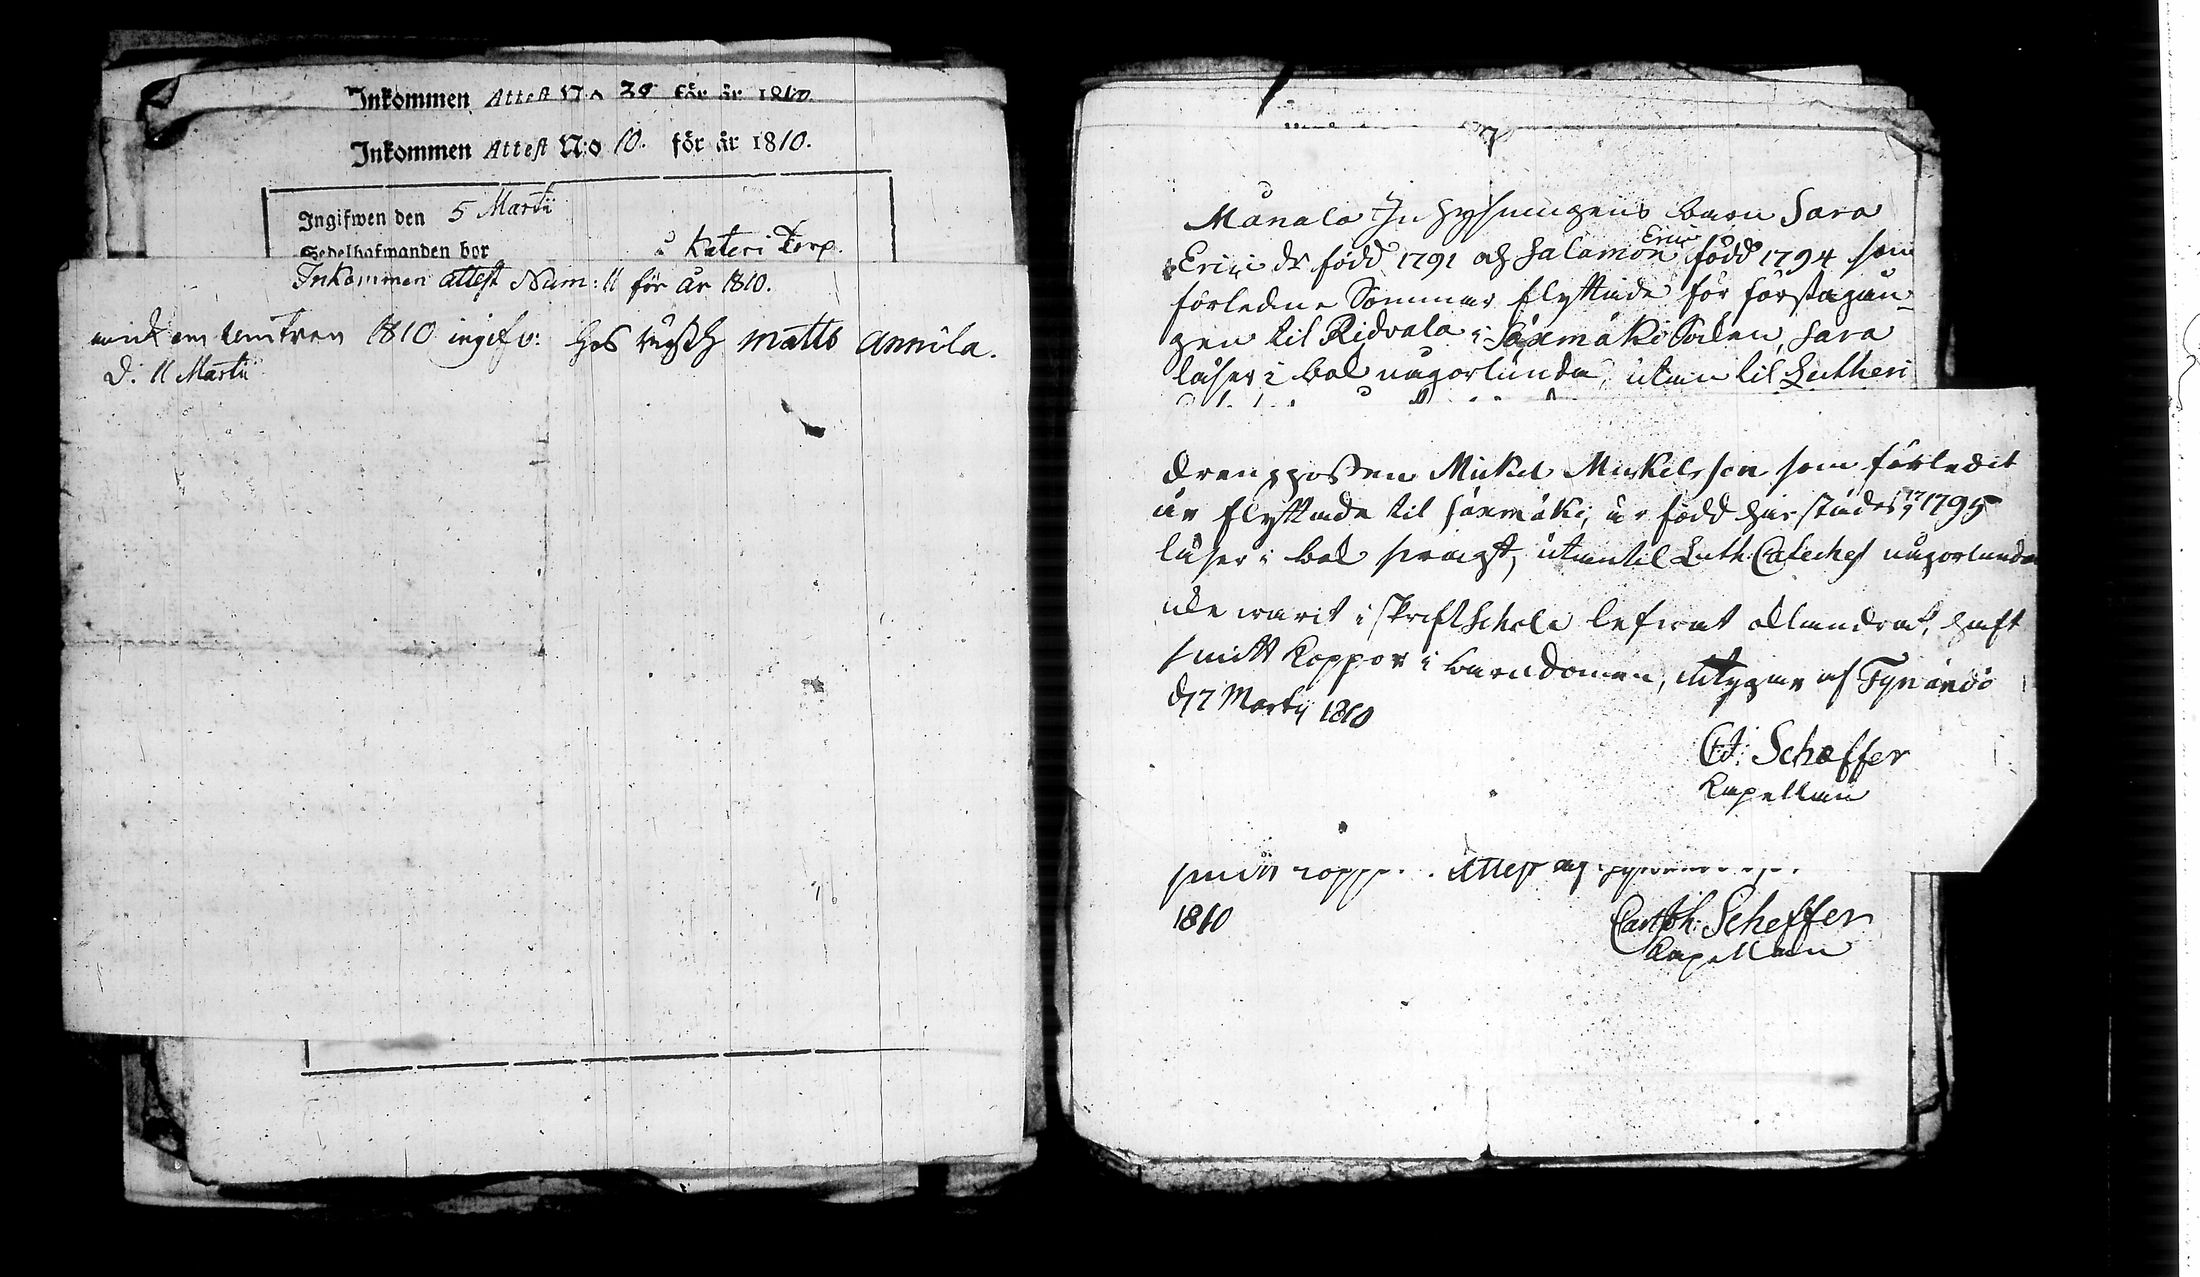 Inkommen Attest No 20 för år 1810.
Inkommen Attest No 10. för år 1810.
Ingifwen den 5 Martii
Sedelhafwanden bor Kateri Torp.
Inkommen attest Num: 11 för år 1810.
1810 ingifv: hos Matts Annila.
D. 11 Martii
Månala Inhysningens barn Sara
Erici dr född 1791 och Salamon Erici född 1794 som
förledne Sommar flyttade för första gån-
gen til Ridvala i Säxmäki Soken, Sara
läser i bok någorlunda, utan til Lutheri
Drenggossen Mickel Mickelsson som förledit
år flyttade til Säxmäki, är född härstädes 1795
läser i bok svagt, utantil Luth. Cateches någorlunda
icke warit i Skriftschola lefwat oklandrat, haft
smitt koppor i barndomen, betygar af Tyrändö
d 7 Martii 1810
C.J. Scheffer
Kapellan
smitt kopp. Attest af
1810
Carl Joh: Scheffer
Kapellan